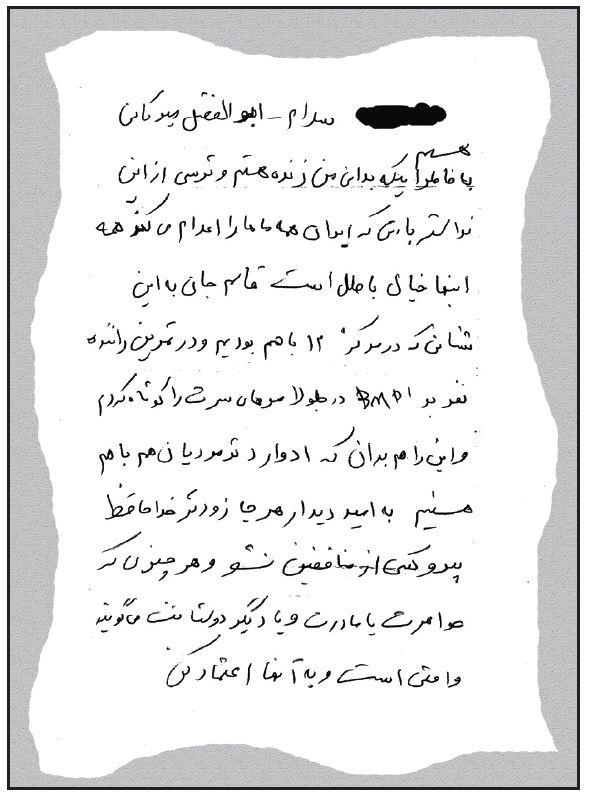 سلام - ابوالفضل میرکانی
هستم
به خاطر اینکه بدانی من زنده هستم و ترسی از این
نداشته باش که ایران همه ماها را اعدام می کند همه
اینها خیال باطل است قاسم جان به این
نشانی که در مرکز ۱۲ با هم بودیم و در تمرین راننده
نفر بر BMP1 در طولا موهای سرت را کوتاه کردم
و این را هم بدان که ادوارد ترمودیان هم با هم
هستیم به امید دیدار هر چه زودتر خداحافظ
پیرو کسی از منافقین نشو و هر چیزی که
خواهرت یا مادرت و یا دیگر دوستانت می گویند
واقعی است و به آنها اعتماد کن